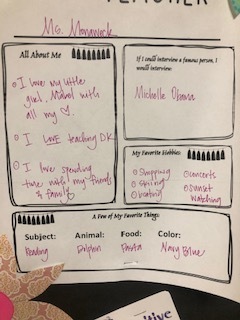 TEACHER
Ms. Monarrock
All About Me
I love my little
girl, Mabel with
all my ♡.
I LOVE teaching DK.
I love spending
time with my friends
& family
If I could interview a famous person, I
would interview:
Michelle Obama
My Favorite Hobbies:
shopping
eating
boating
concerts
sunset
watching
A Few of My Favorite Things:
Subject: Animal: Food: Color:
Reading Dolphin Pasta Navy Blue
itive